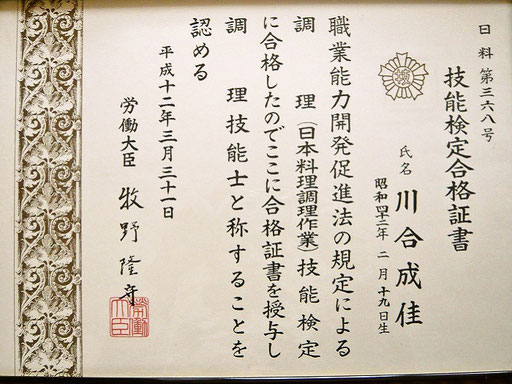 日料第三六八号
技能検定合格証書
氏名 川合成佳
昭和四十二年 二月十九日生
職業能力開発促進法の規定による
調理(日本料理調理作業)技能検定
に合格したのでここに合格証書を授与し
調理技能士と称することを
認める
平成十二年三月三十一日
労働大臣 牧野隆守
労働大臣